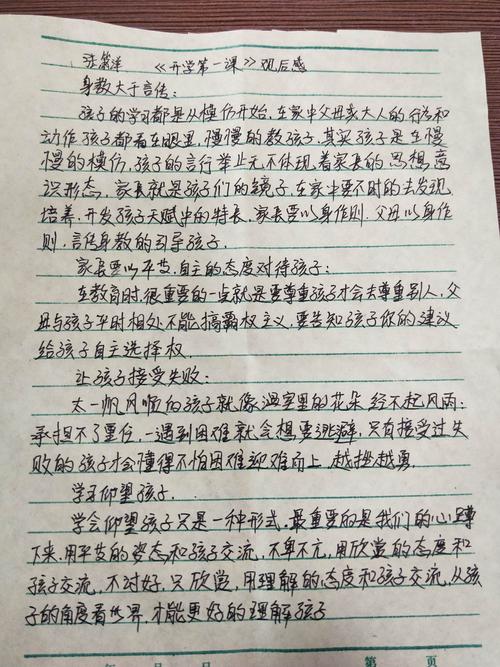 《开学第一课》观后感
身教大于言传:
孩子的学习都是从模仿开始,在家中父母亲大人的行为和
动作,孩子都看在眼里,慢慢的教孩子,其实孩子是在慢
慢的模仿,孩子的言行举止无不体现着家长的思想,意
识形态,家长就是孩子们的镜子,在家中要不时的去发现,
培养,开发孩子天赋中的特长,家长要以身作则,父母以身作
则,言传身教的引导孩子.
家长要以平等,自主的态度对待孩子:
在教育时,很重要的一点就是要尊重孩子才会去尊重别人,父
母与孩子平时相处不能搞霸权主义,要告知孩子你的建议
给孩子自主选择权.
让孩子接受失败:
太一帆风顺的孩子就像温室里的花朵经不起风雨;
承担不了重任,一遇到困难就会想要逃避,只有接受过失
败的孩子才会懂得不怕困难迎难而上,越挫越勇.
学习仰望孩子.
学会仰望孩子只是一种形式,最重要的是我们的心蹲
下来,用平等的姿态和孩子交流,不卑不亢,用欣赏的态度和
孩子交流,不讨好,只欣赏,用理解的态度和孩子交流,从孩
子的角度看世界,才能更好的理解孩子
年 月 日 第 页